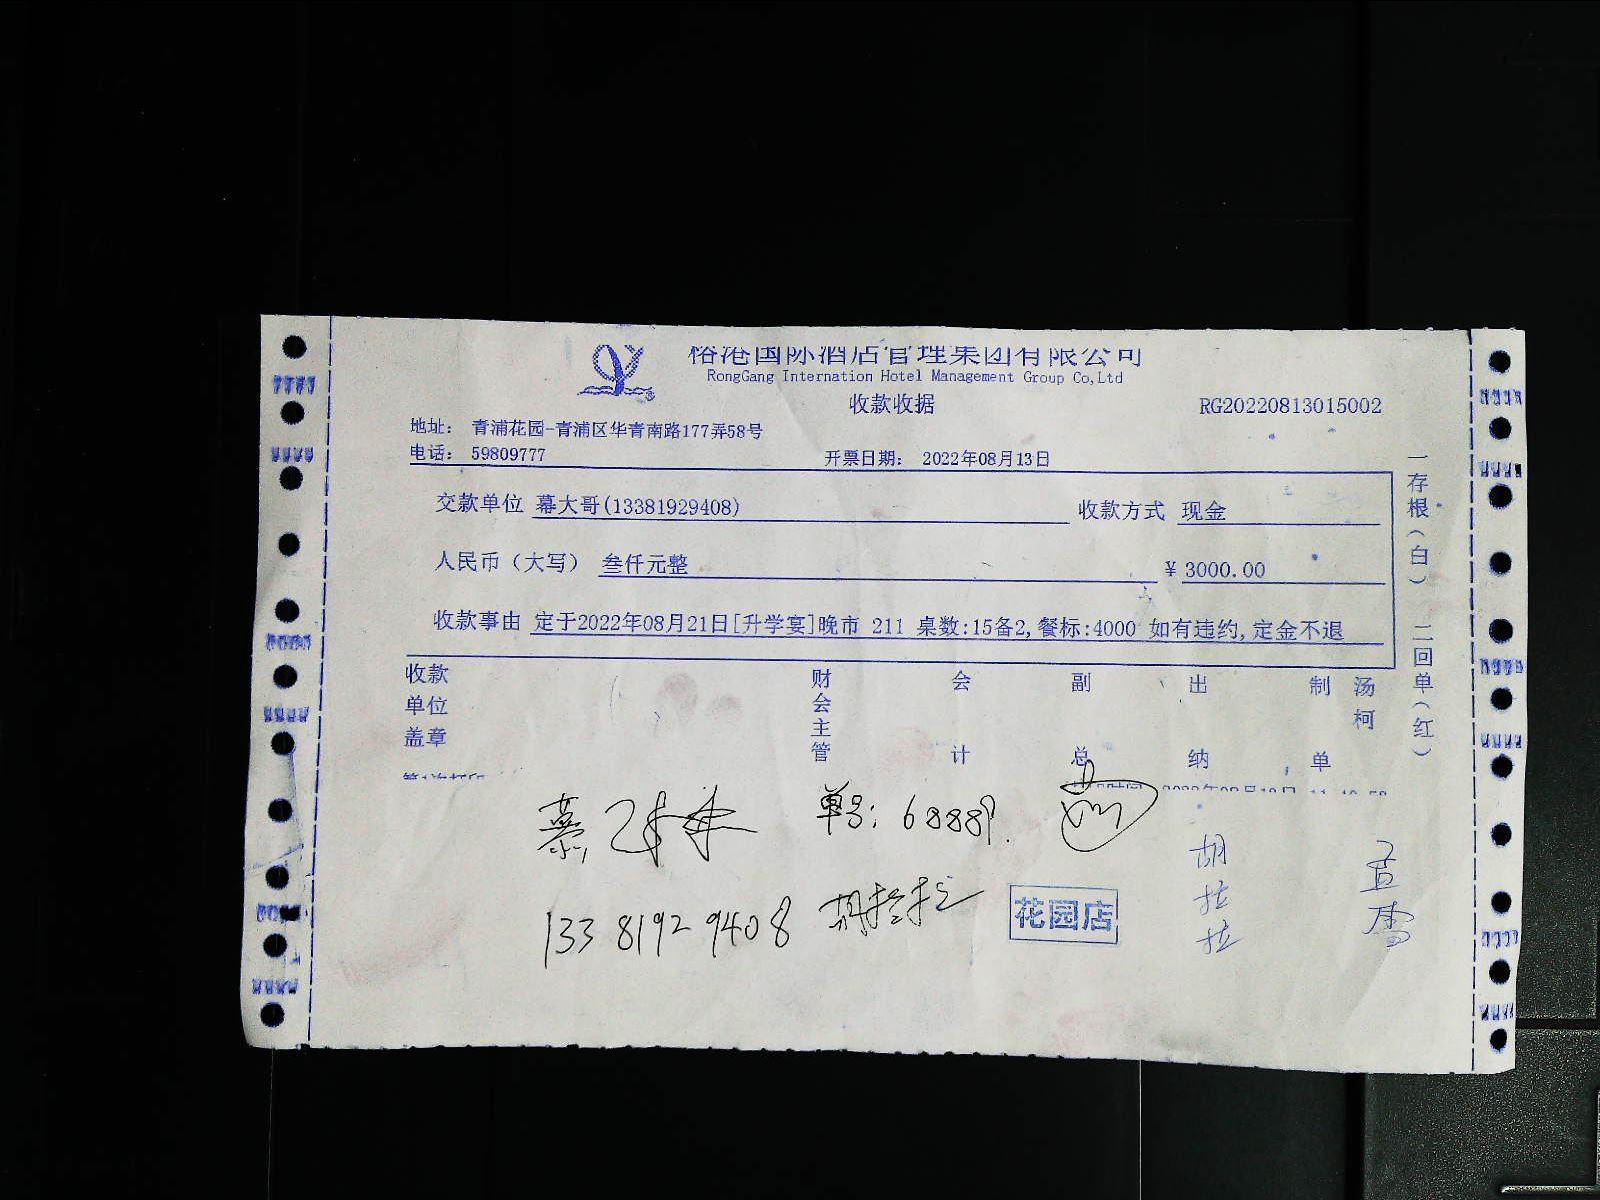 榕港国际酒店管理集团有限公司
RongGang Internation Hotel Management Group Co,Ltd
收款收据
RG20220813015002
地址： 青浦花园-青浦区华青南路177弄58号
电话： 59809777
开票日期： 2022年08月13日
交款单位 幕大哥(13381929408)
收款方式 现金
人民币（大写） 叁仟元整
￥ 3000.00
收款事由 定于2022年08月21日[升学宴]晚市 211 桌数:15备2,餐标:4000 如有违约,定金不退
收款单位盖章
财会主管
会计
副总
出纳
制单
汤柯
一存根（白） 二回单（红）
单号: 68889.
13381929408
胡拉拉
花园店
胡拉拉
孟雪